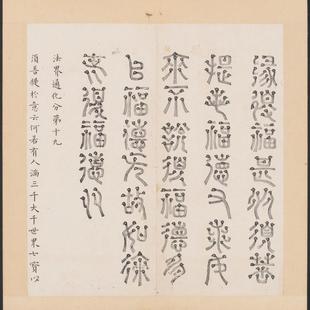 緣得福甚多須菩
提若福德有實如
來不說得福德多
以福德無故如來
說得福德多
法界通化分第十九
須菩提於意云何若有人滿三千大千世界七寶以